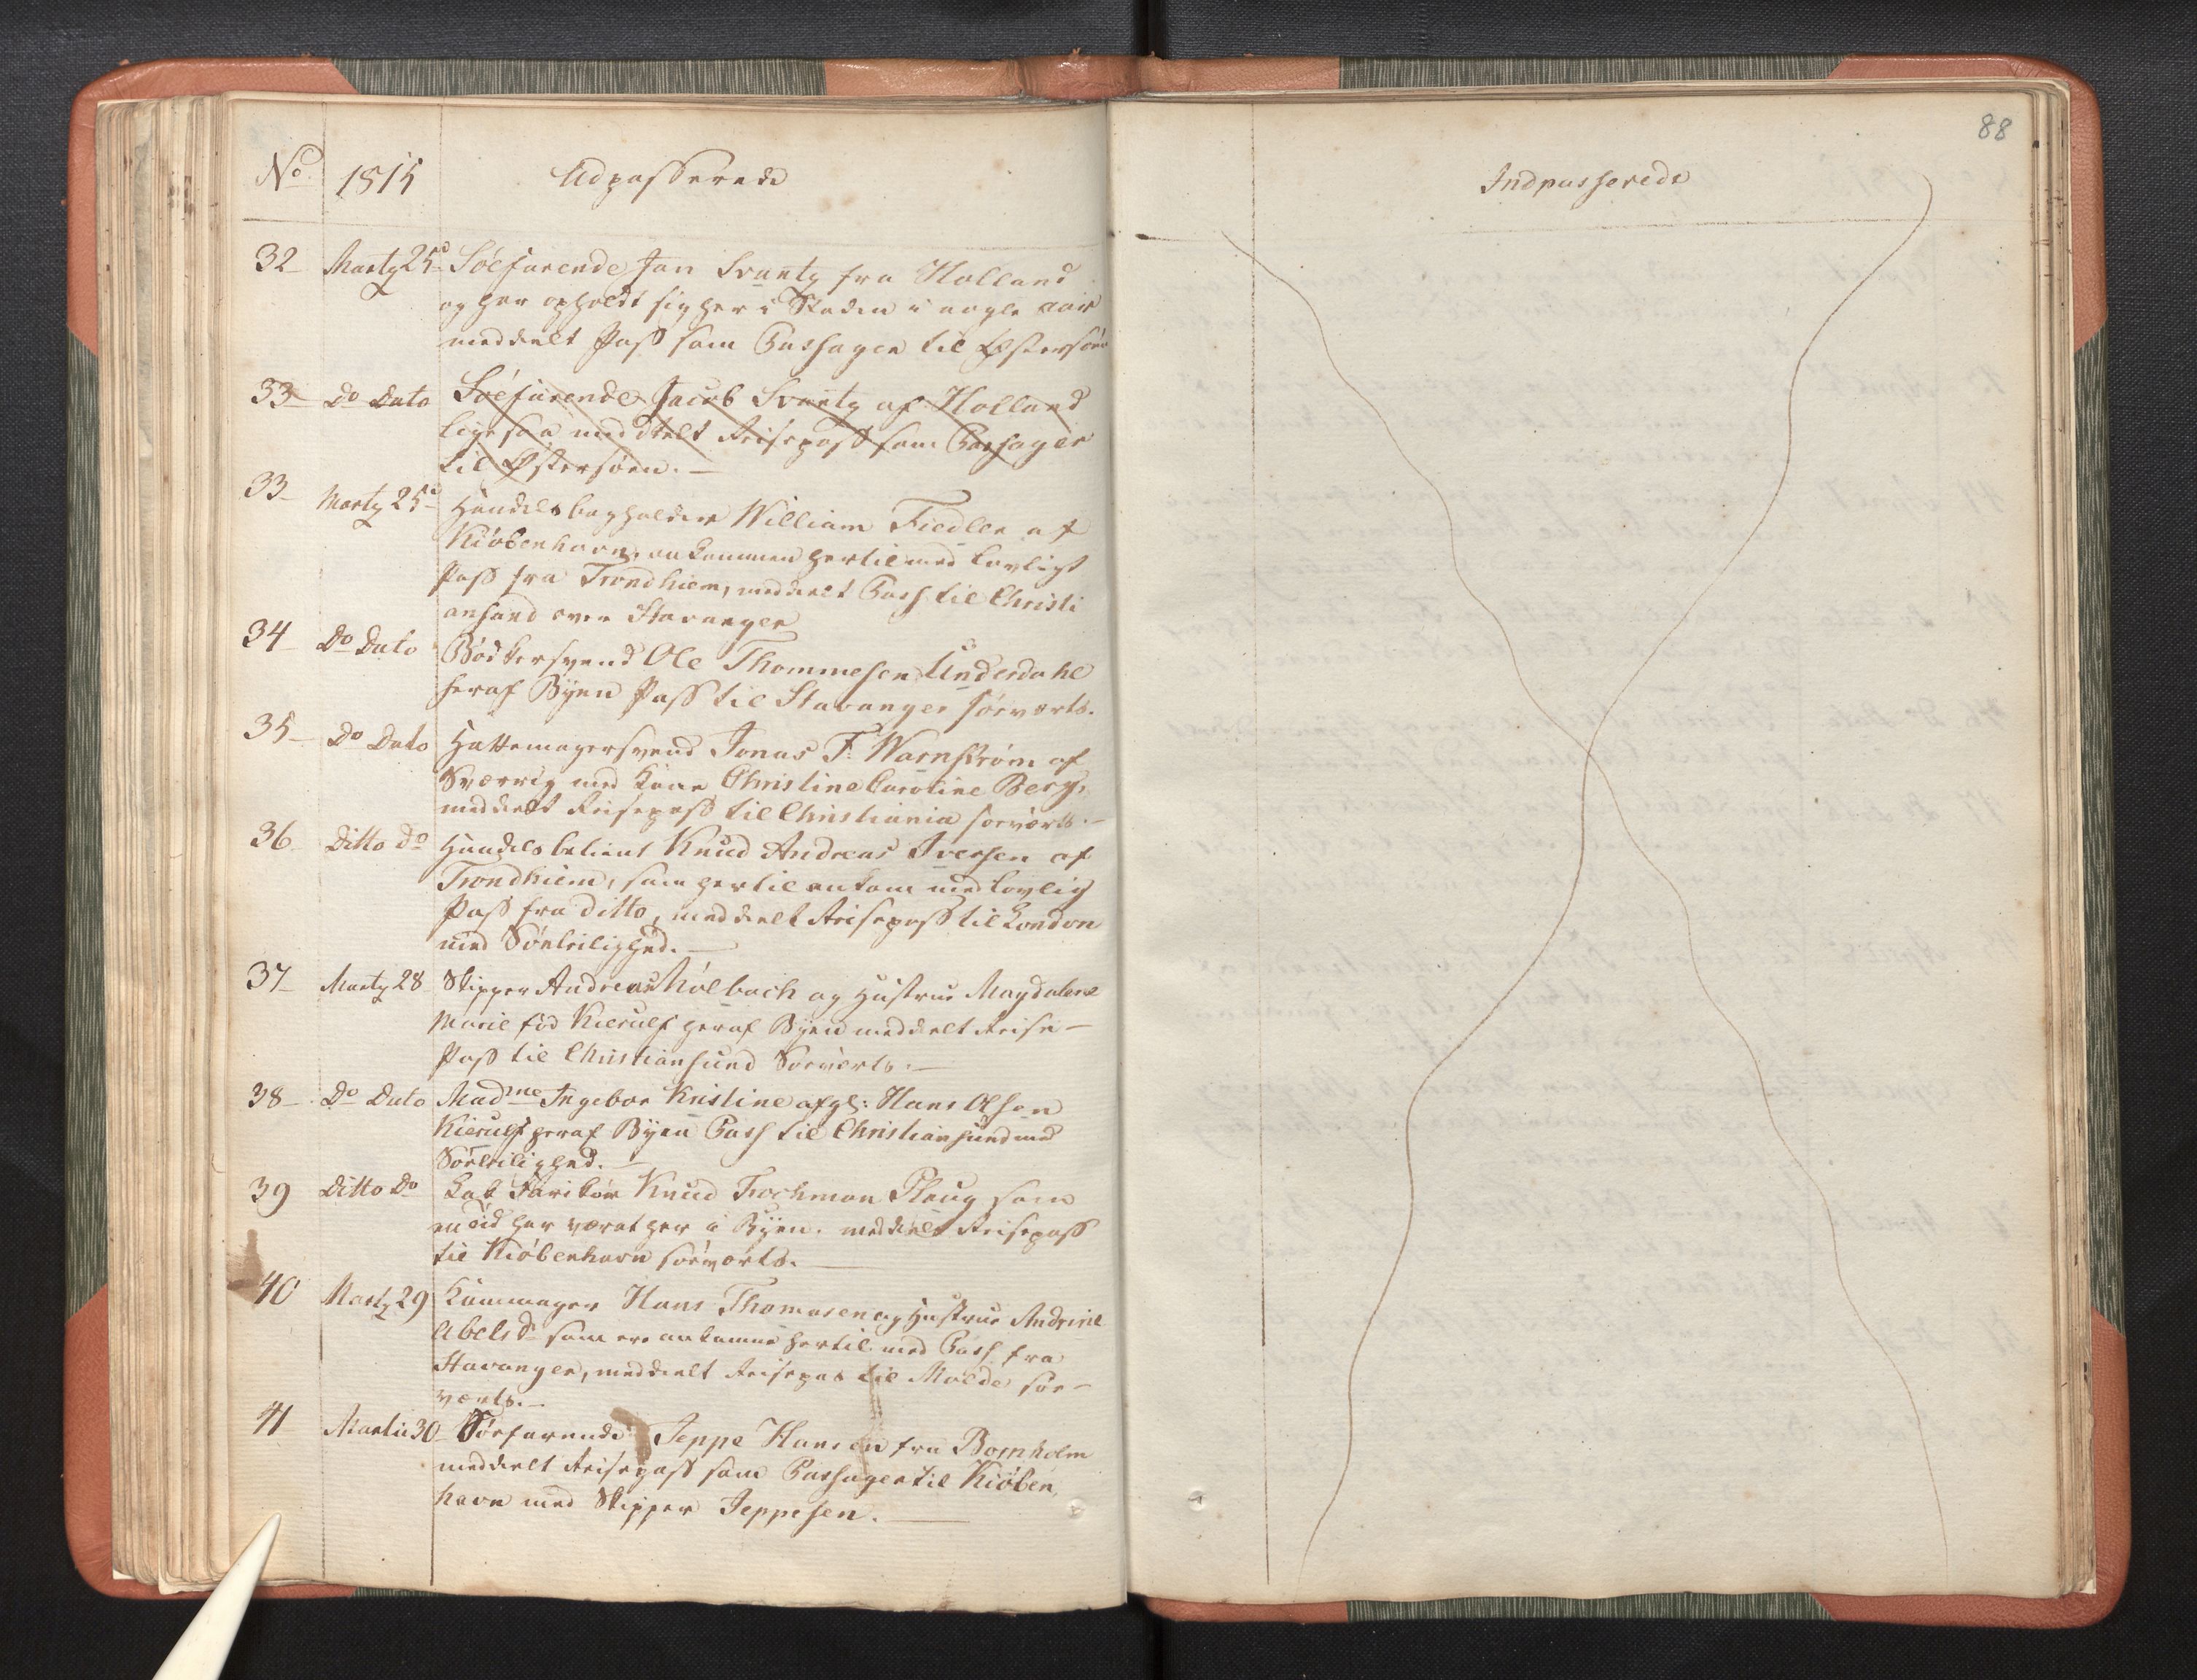 No 1815 Udpasserede
32 Marty 25d Söefarende Jan Svantz fra Holland
og har opholdt sig her i Staden i nogle aar
meddelt Pass som Passager til Østersöen
33 Do Dato Söefarende Jacob Svantz af Holland
ligesaa meddelt Reisepass som Passager
til Østersöen.
33 Marty 25d Handelsbogholder William Fiedler af
Kiöbenhavn, ankommen hertil med lovligt
Pass fra Trondhiem, meddelt Pass til Christi
ansand over Stavanger
34 Do Dato Bödkersvend Ole Thommesen Underdahl
heraf Byen Pass til Stavanger söeværts.
35 Do Dato Hattemagersvend Jonas F. Warnström af
Sværrig med Kone Christine Caroline Berg,
meddelt Reisepass til Christiania söeværts.
36 Ditto Do Handelsbetient Knud Andreas Iversen af
Trondhiem, som hertil ankom med lovlig
Pass fra ditto, meddelt Reisepass til London
med Söeleilighed.
37 Marty 28 Skipper Andreas Kölbach og Hustrue Magdalene
Marie föd Kierulf heraf Byen meddelt Reise-
Pass til Christiansund Söeværts.
38 Do Dato Madme Ingebor Kristine afgl: Hans Olsen
Kierulf heraf Byen Pass til Christiansund med
Söeleilighed.
39 Ditto Do Knud Trochman Plaug som
en tid har været her i Byen. meddelt Reisepass
til Kiöbenhavn söeværts.
40 Marty 29 Kammager Hans Thomasen og Hustrue Andrine
Abelsdr som ere ankomne hertil med Pass fra
Stavanger, meddelt Reisepas til Molde söe-
værts.
41 Martii 30 Söefarende Jeppe Hansen fra Bornholm
meddelt Reisepass som Passager til Kiöben
havn med Skipper Jeppesen.
88
Indpasserede